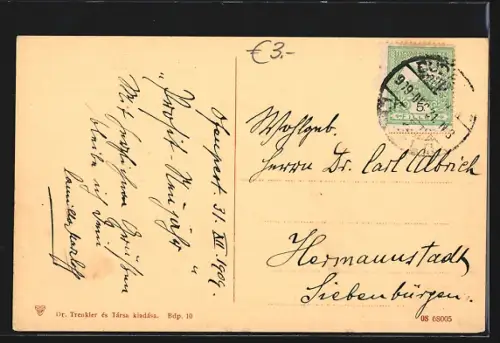 €3.-
Ofenpest. 31. XII. 1909.
"Prosit - Neujahr"
Mit herzlichen Grüßen
bleibe ich Dein
Wohlgeb.
Herrn Dr. Carl Albrich
Hermannstadt
Siebenbürgen.
Dr. Trenkler és Társa kiadása. Bdp. 10
08 68005